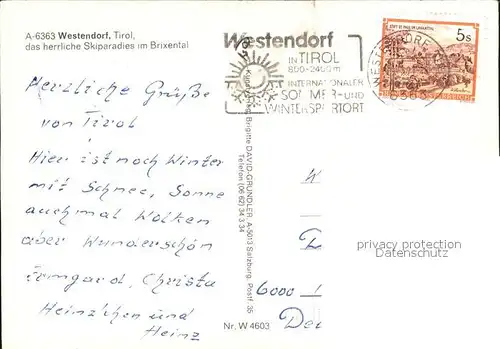 A-6363 Westendorf, Tirol,
das herrliche Skiparadies im Brixental
Herzliche Grüße
von Tirol
Hier ist noch Winter
mit Schnee, Sonne
auch mal Wolken
aber Wunderschön
Irmgard, Christa
Heinz'chen und
Heinz
Westendorf
IN TIROL
800-2400 m
INTERNATIONALER
SOMMER- UND
WINTERSPORTORT
5s
STIFT ST. PAUL IM LAVANTTAL
WESTENDORF
6363
Brigitte DAVID-GRÜNDLER, A-5013 Salzburg, Postf. 35
Telefon (06 62) 34 3 34
Nr. W 4603
6000
privacy protection
Datenschutz